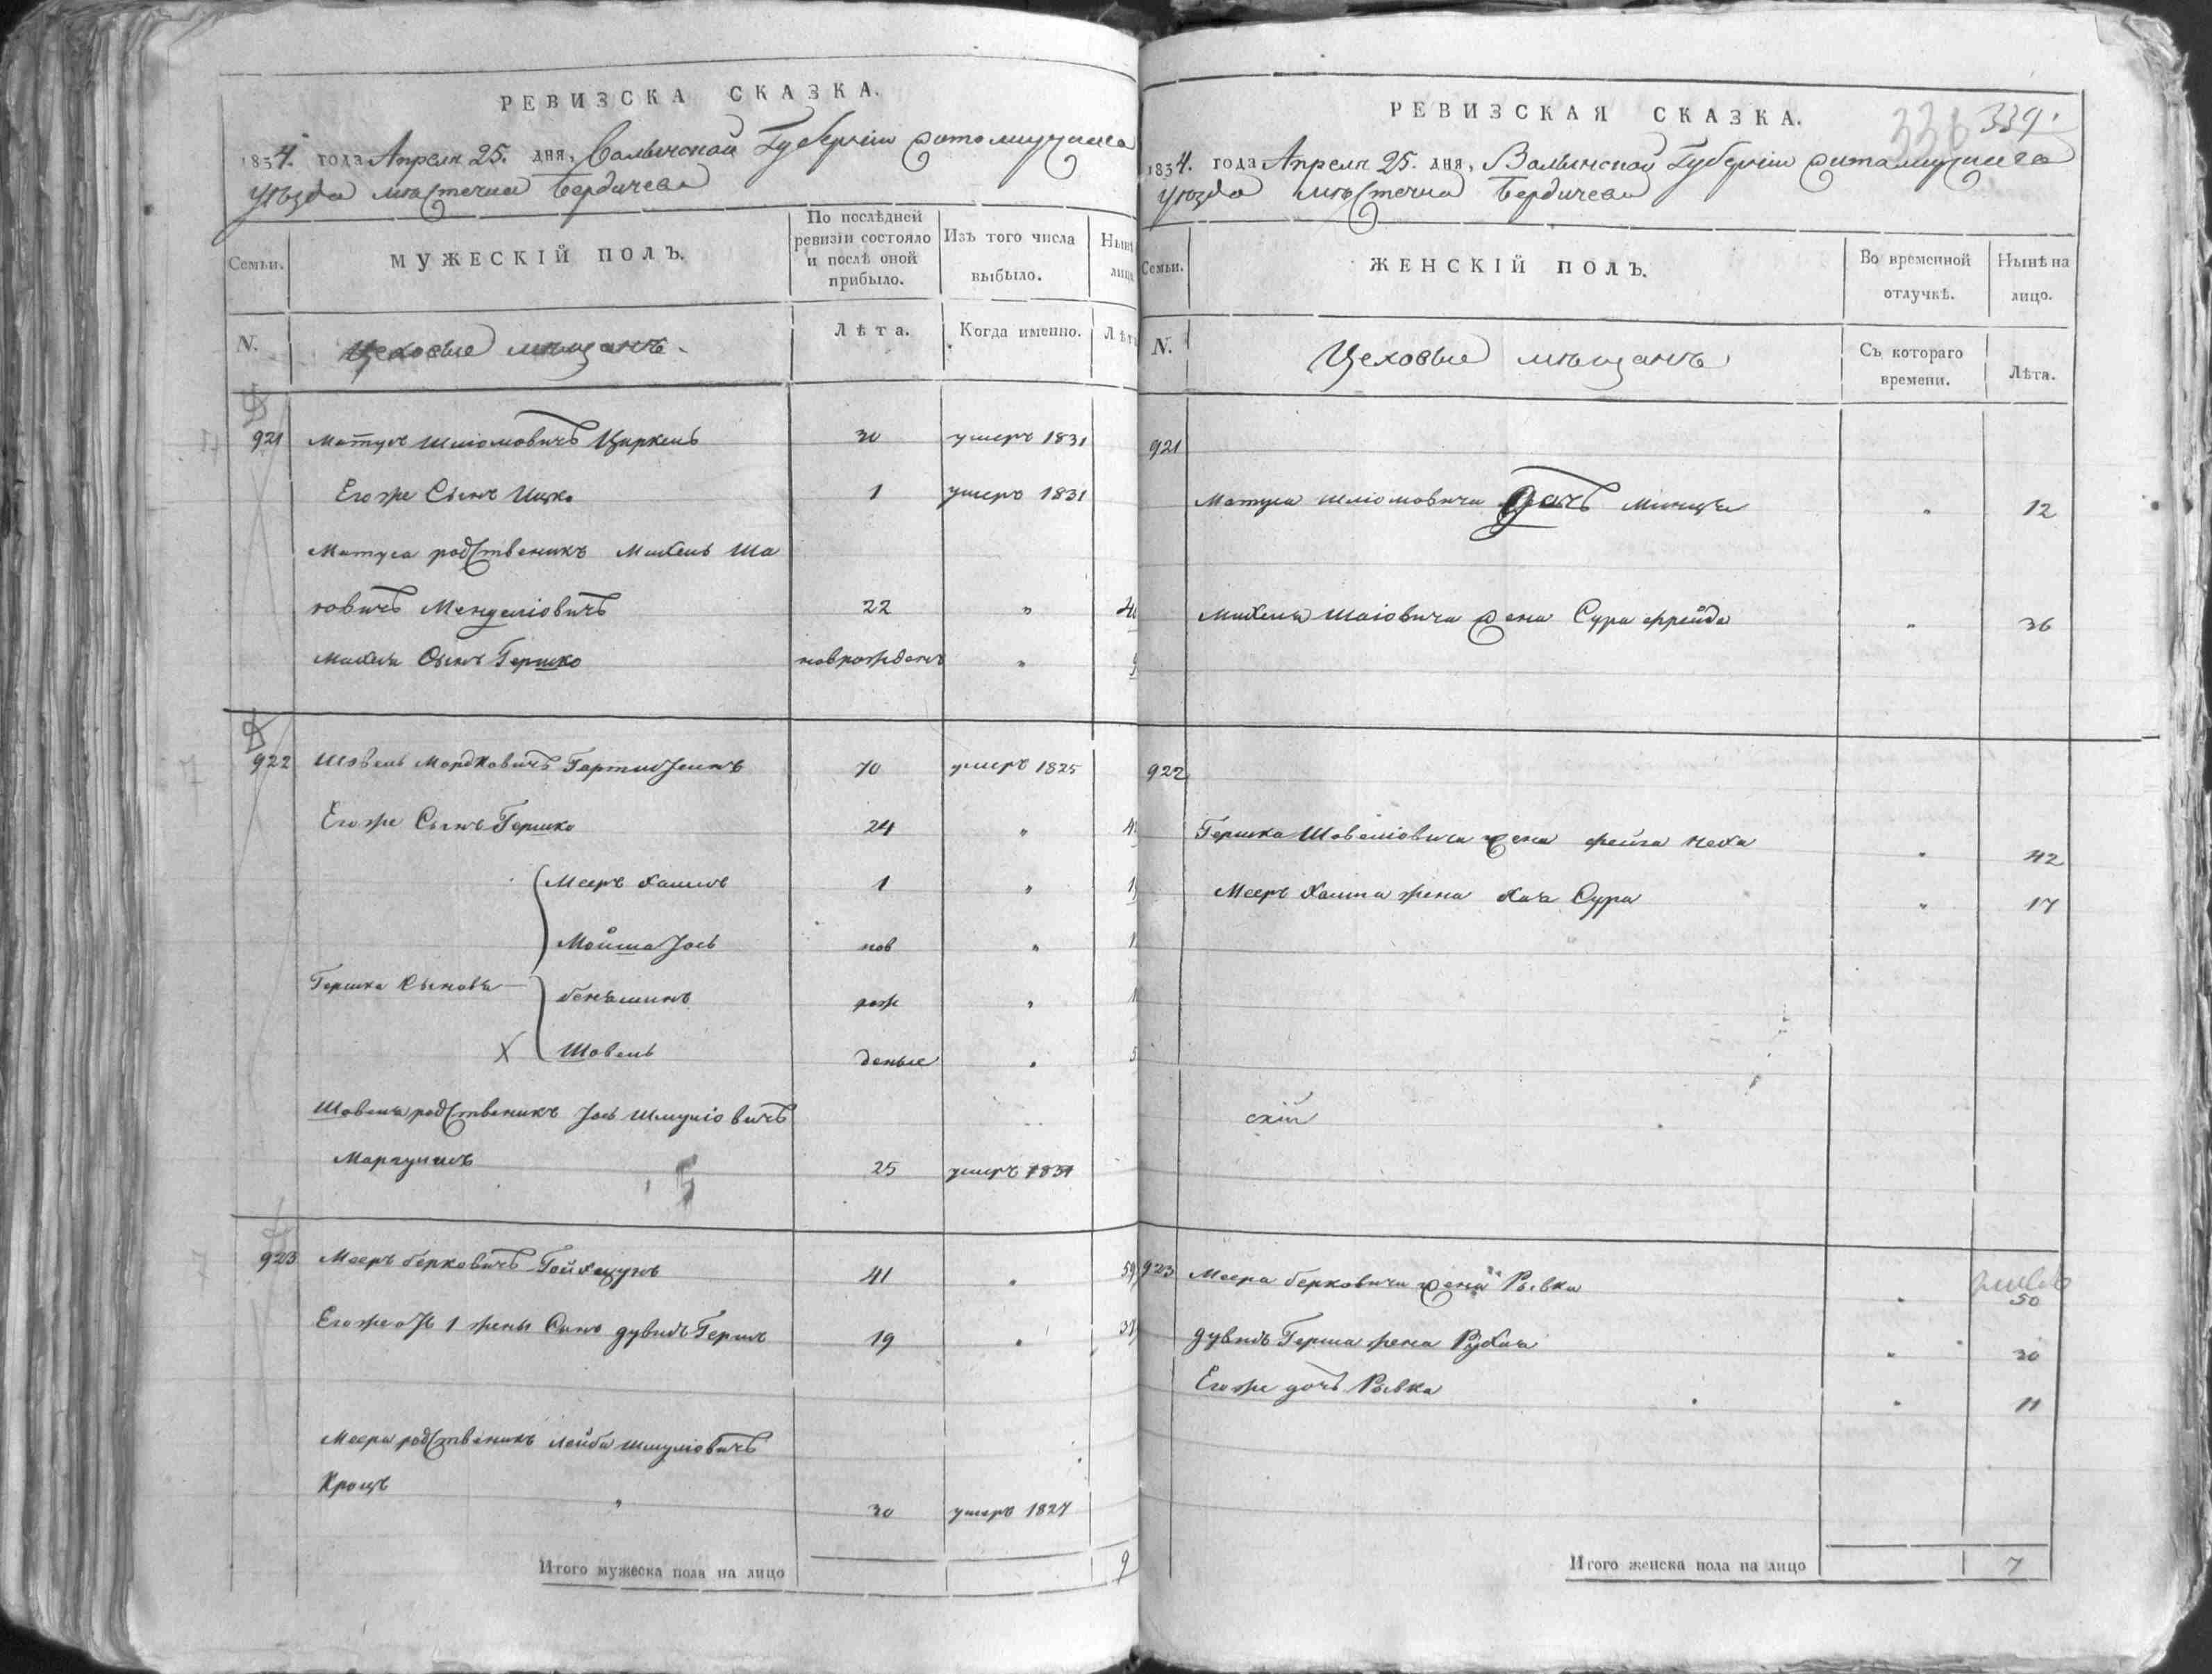 РЕВИЗСКА СКАЗКА.
1834. года Апреля 25. дня, Волынской Губерніи Житомирскаго
Уѣзда мѣстечка Бердичева
Семьи.
МУЖЕСКІЙ ПОЛЪ.
По послѣдней ревизіи состояло и послѣ оной прибыло.
Изъ того числа выбыло.
Нынѣ
лицо
N.
Цеховые мѣщанъ.
Лѣта.
Когда именно.
Лѣт
921 Матусъ Шліомовичъ Циркель 30 умеръ 1831
Егоже Сынъ Ицко 1 умеръ 1831
Матуса родственикъ Михель Ша
ювичъ Менделіовичъ 22 "
Михеля Сынъ Гершко новрожденъ "
922 Шовель Мордковичъ 70 умеръ 1825
Егоже Сынъ Гершко 24 "
Мееръ Хаимъ 1 "
Мойша Іось нов "
Гершка Сыновья
беньяминъ рож "
X Шовель деные "
Шовеля родственикъ Іось Шмуліовичъ
25 умеръ 1831
5
923 Мееръ берковичъ 41 " 59
Егоже отъ 1 жены Сынъ дувидъ Гершъ 19 "
Меера родственикъ лейба Шмуліовичъ
30 умеръ 1827
Итого мужеска пола на лицо 9
РЕВИЗСКАЯ СКАЗКА.
336 339.
1834. года Апреля 25. дня, Волынской Губерніи Житомирскаго
уѣзда мѣстечка Бердичева
Семьи.
ЖЕНСКІЙ ПОЛЪ.
Во временной отлучкѣ.
Нынѣ на лицо.
N.
Цеховые мѣщанъ
Съ котораго времени.
Лѣта.
921
Матуса Шліомовича дочь " 12
Михеля Шаіовича жена Сура фрейда " 36
922
Гершка Шовеліовича жена фейга Неха " 42
Мееръ Хаима жена Хая Сура " 17
скій
923 Меера берковича жена Рывка " 50
дувидъ Герша жена Рухля " 30
Егоже дочь Рывка " 11
Итого женска пола на лицо 7